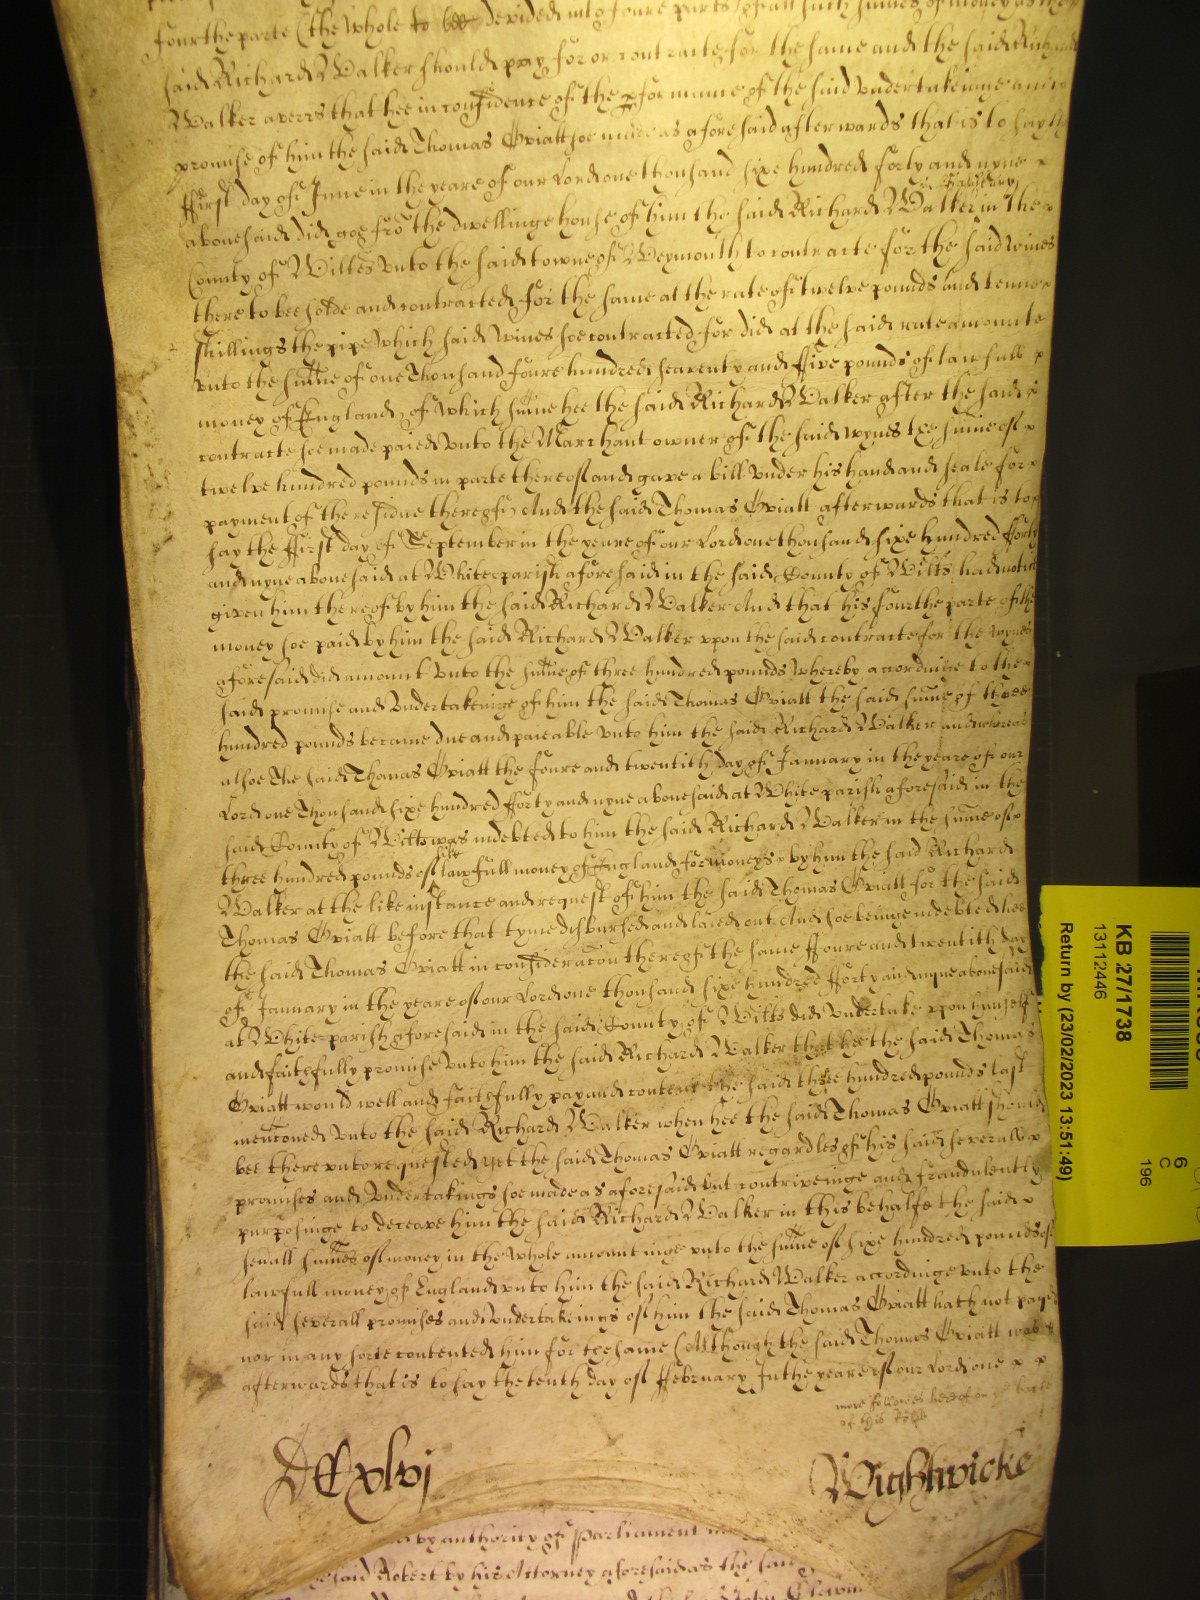 fourthe parte (the whole to bee devided into foure parts) of all such sumes of money as hee
said Richard Walker should pay for or contracte for the same and the said Richard
Walker averrs that hee in confidence of the pformance of the said undertakeinge and
promise of him the said Thomas Gviatt soe made as aforesaid afterwards that is to say the
ffirst day of June in the yeare of our Lord one thousand sixe hundred forty and nyne
abovesaid did goe fro the dwellinge house of him the said Richard Walker in the
County of Wiltes unto the said towne of Weymouth to contracte for the said wines
there to bee solde and contracted for the same at the rate of twelve pounds and tenne
shillings the pipe which said wines soe contracted for did at the said rate amounte
unto the sume of one Thousand foure hundred seaventy and ffive pounds of lawfull
money of England of which sume hee the said Richard Walker after the said
contracte soe made paied unto the Marchant owner of the said wynes the sume of
twelve hundred pounds in parte thereof and gave a bill under his hand and seale for
payment of the residue thereof And the said Thomas Gviatt afterwards that is to
say the ffirst day of September in the yeare of our Lord one thousand sixe hundred fforty
and nyne abovesaid at Whiteparish aforesaid in the said County of Wilts had notice
given him thereof by him the said Richard Walker And that his fourthe parte of the
money soe paid by him the said Richard Walker upon the said contracte for the wynes
aforesaid did amount unto the sume of three hundred pounds whereby accordinge to the
said promise and undertakeinge of him the said Thomas Gviatt the said sume of three
hundred pounds became due and paieable unto him the said Richard Walker and whereas
alsoe the said Thomas Gviatt the foure and twentith day of January in the yeare of our
Lord one Thousand sixe hundred fforty and nyne abovesaid at Whiteparish aforesaid in the
said County of Wilts was indebted to him the said Richard Walker in the sume of
three hundred pounds of like lawfull money of England for moneys by him the said Richard
Walker at the like instance and request of him the said Thomas Gviatt for the said
Thomas Gviatt before that tyme disbursed and laied out And soe beinge indebted hee
the said Thomas Gviatt in consideracon thereof the same ffoure and twentith day
of January in the yeare of our Lord one thousand sixe hundred fforty and nyne abovesaid
at Whiteparish aforesaid in the said County of Wilts did undertake upon himself
and faithfully promise unto him the said Richard Walker that hee the said Thomas
Gviatt would well and faithfully pay and content the said three hundred pounds last
menconed unto the said Richard Walker when hee the said Thomas Gviatt should
bee thereunto requested yet the said Thomas Gviatt regardles of his said severall
promises and undertakings soe made as aforesaid but contriveinge and fraudulently
purposinge to deceave him the said Richard Walker in this behalfe the said
sevall sumes of money in the whole amountinge unto the sume of sixe hundred pounds of
lawfull money of England unto him the said Richard Walker accordinge unto the
said severall promises and undertakeings of him the said Thomas Gviatt hath not payed
nor in any sorte contented him for the same (Although the said Thomas Gviatt was
afterwards that is to say the tenth day of ffebruary In the yeare of our Lord one
more followes hereof on
of this
DCxlvj
Wightwicke
by authority of Parliament
said Robert by his Attorney aforesaid as the
KB 27/1738
13112446
Return by (23/02/2023 13:51:49)
6
C
196